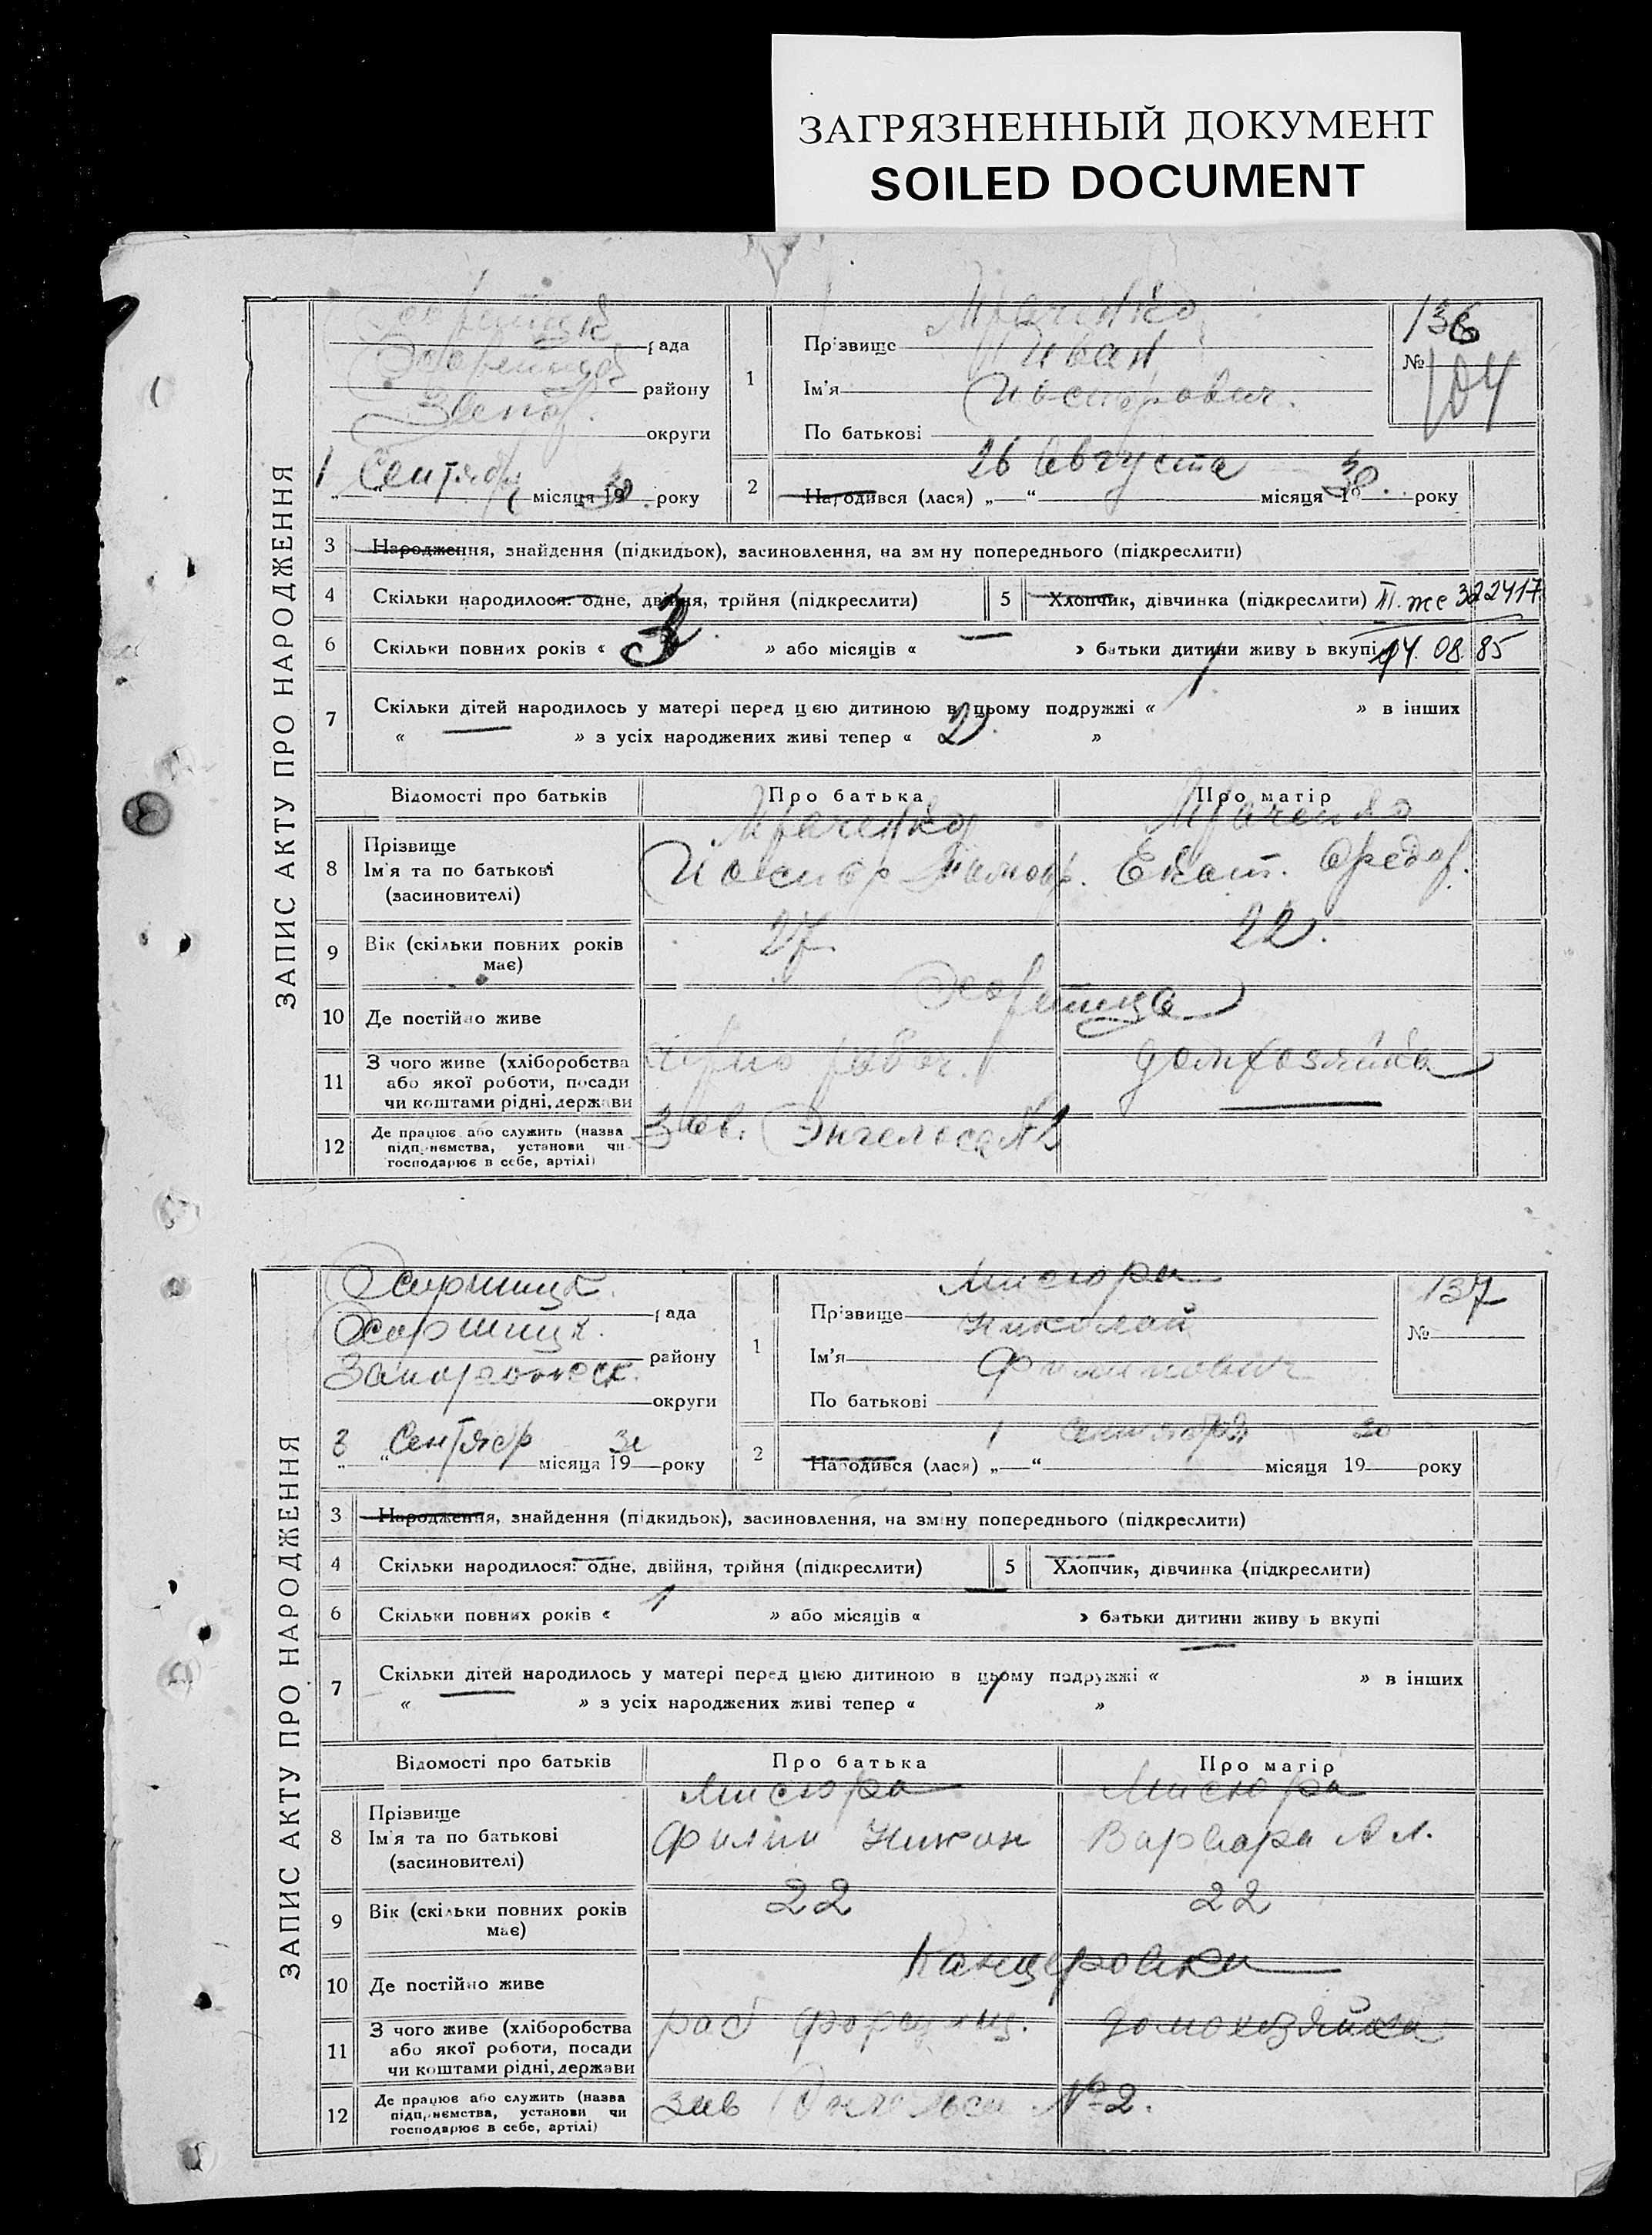 ЗАГРЯЗНЕННЫЙ ДОКУМЕНТ
SOILED DOCUMENT
ЗАПИС АКТУ ПРО НАРОДЖЕННЯ
рада
району
округи
1 Сентябр місяця 1930 року
1
Прізвище
Ім'я Иван
По батькові Иосифович.
136
№ 104
2
Народився (лася) „26“ Августа місяця 30 року
3 Народження, знайдення (підкидьок), засиновлення, на зміну попереднього (підкреслити)
4 Скільки народилося: одне, двійня, трійня (підкреслити)
5 Хлопчик, дівчинка (підкреслити) III-же 322417
6 Скільки повних років « 3 » або місяців « — » батьки дитини живуть вкупі 14.08.85
7 Скільки дітей народилось у матері перед цією дитиною в цьому подружжі « 1 » в інших
« — » з усіх народжених живі тепер « 2 »
Відомості про батьків
Про батька
Про матір
8 Прізвище
Ім'я та по батькові
(засиновителі)
Иосиф
Екат. Федор.
9 Вік (скільки повних років має)
27
22.
10 Де постійно живе
Хортица
11 З чого живе (хліборобства або якої роботи, посади чи коштами рідні, держави
черно рабоч.
домхозяйка
12 Де працює або служить (назва підприємства, установи чи господарює в себе, артілі)
Зав. Энгельса №2
ЗАПИС АКТУ ПРО НАРОДЖЕННЯ
Хортицк. рада
Хортицк. району
Запорожск. округи
3 Сентябр місяця 1930 року
1
Прізвище Мисюра
Ім'я Николай
По батькові Филипович
137
№
2
Народився (лася) „1“ сентября місяця 1930 року
3 Народження, знайдення (підкидьок), засиновлення, на зміну попереднього (підкреслити)
4 Скільки народилося: одне, двійня, трійня (підкреслити)
5 Хлопчик, дівчинка (підкреслити)
6 Скільки повних років « 1 » або місяців « — » батьки дитини живуть вкупі
7 Скільки дітей народилось у матері перед цією дитиною в цьому подружжі « — » в інших
« — » з усіх народжених живі тепер « 1 »
Відомості про батьків
Про батька
Про матір
8 Прізвище
Ім'я та по батькові
(засиновителі)
Мисюра
Филип Никон
Мисюра
Варвара Ал.
9 Вік (скільки повних років має)
22
22
10 Де постійно живе
Канцеровка
11 З чого живе (хліборобства або якої роботи, посади чи коштами рідні, держави
раб
домохозяйка
12 Де працює або служить (назва підприємства, установи чи господарює в себе, артілі)
зав Энгельса №2.